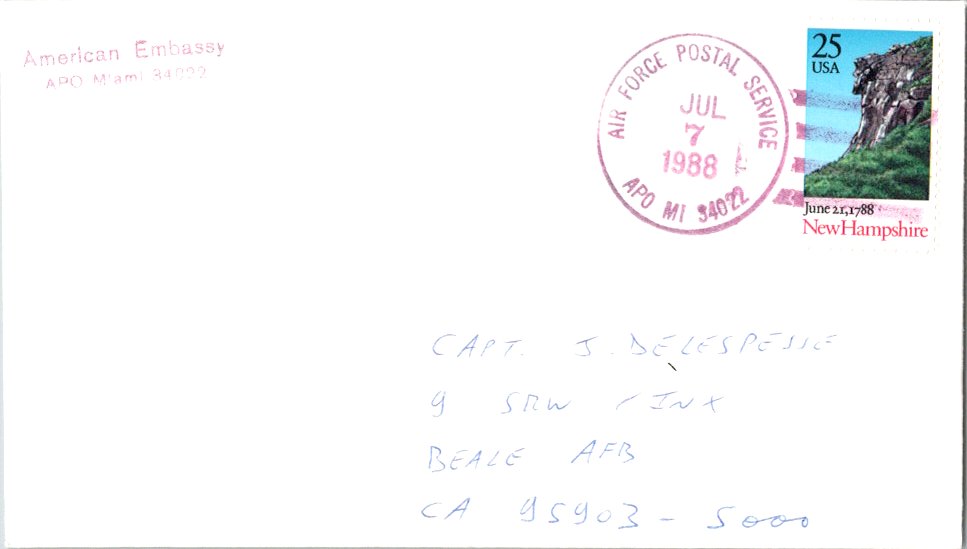 American Embassy
APO Miami 34022
AIR FORCE POSTAL SERVICE
JUL
7
1988
APO MI 34022
25
USA
June 21, 1788
New Hampshire
CAPT. J. DELESPESSE
9 SRW / INX
BEALE AFB
CA 95903 - 5000